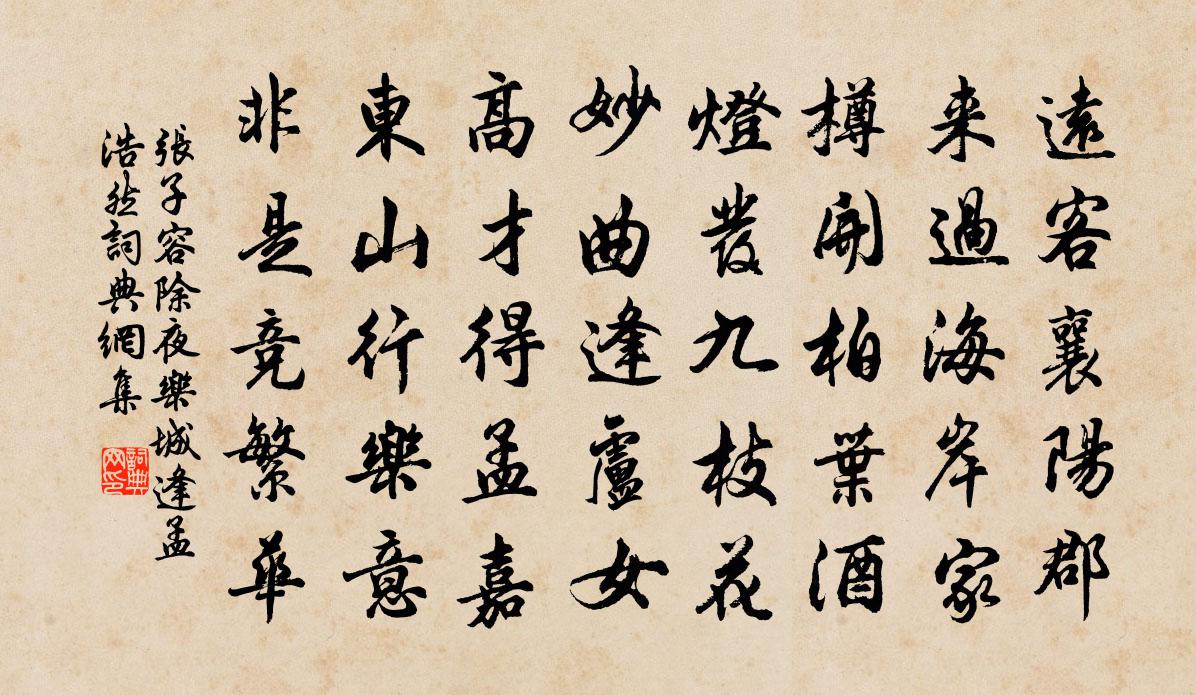 遠客襄陽郡
来過海岸家
樽開柏葉酒
燈發九枝花
妙曲逢盧女
高才得孟嘉
東山行樂意
非是竞繁華
張子容除夜樂城逢孟
浩然詞典網集
詞典网印